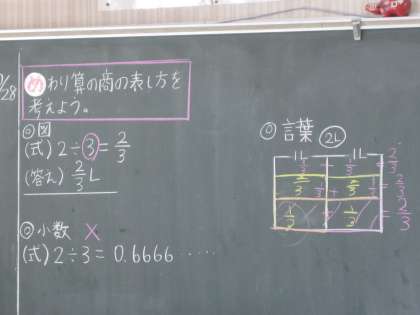 /28
めわり算の商の表し方を
考えよう。
◎図
(式) 2÷3=2/3
(答え) 2/3 L
◎小数 ×
(式) 2÷3=0.6666……
◎言葉 2L
1L 1L
1/3 + 1/3 = 2/3
1/3 1/3 = 2/3